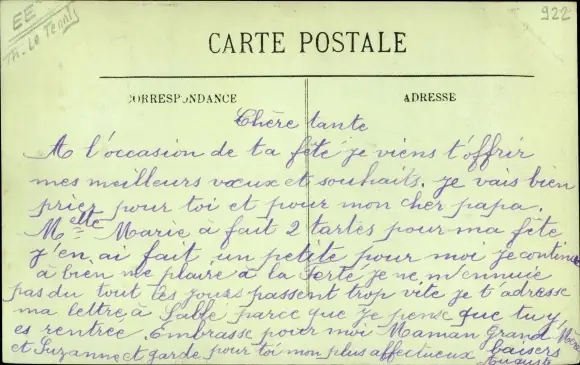 EE
Th. Le Tennis
922
CARTE POSTALE
CORRESPONDANCE
ADRESSE
Chère tante
A l'occasion de ta fête je viens t'offrir
mes meilleurs vœux et souhaits. je vais bien
prier pour toi et pour mon cher papa.
Melle Marie à fait 2 tartes pour ma fête
j'en ai fait un petite pour moi je continue
à bien me plaire à la Ferté je ne m'ennuie
pas du tout les jours passent trop vite je t'adresse
ma lettre à Sablé parce que je pense que tu y
es rentrée. Embrasse pour moi Maman Grand Mère
et Suzanne et garde pour toi mon plus affectueux baisers
Auguste